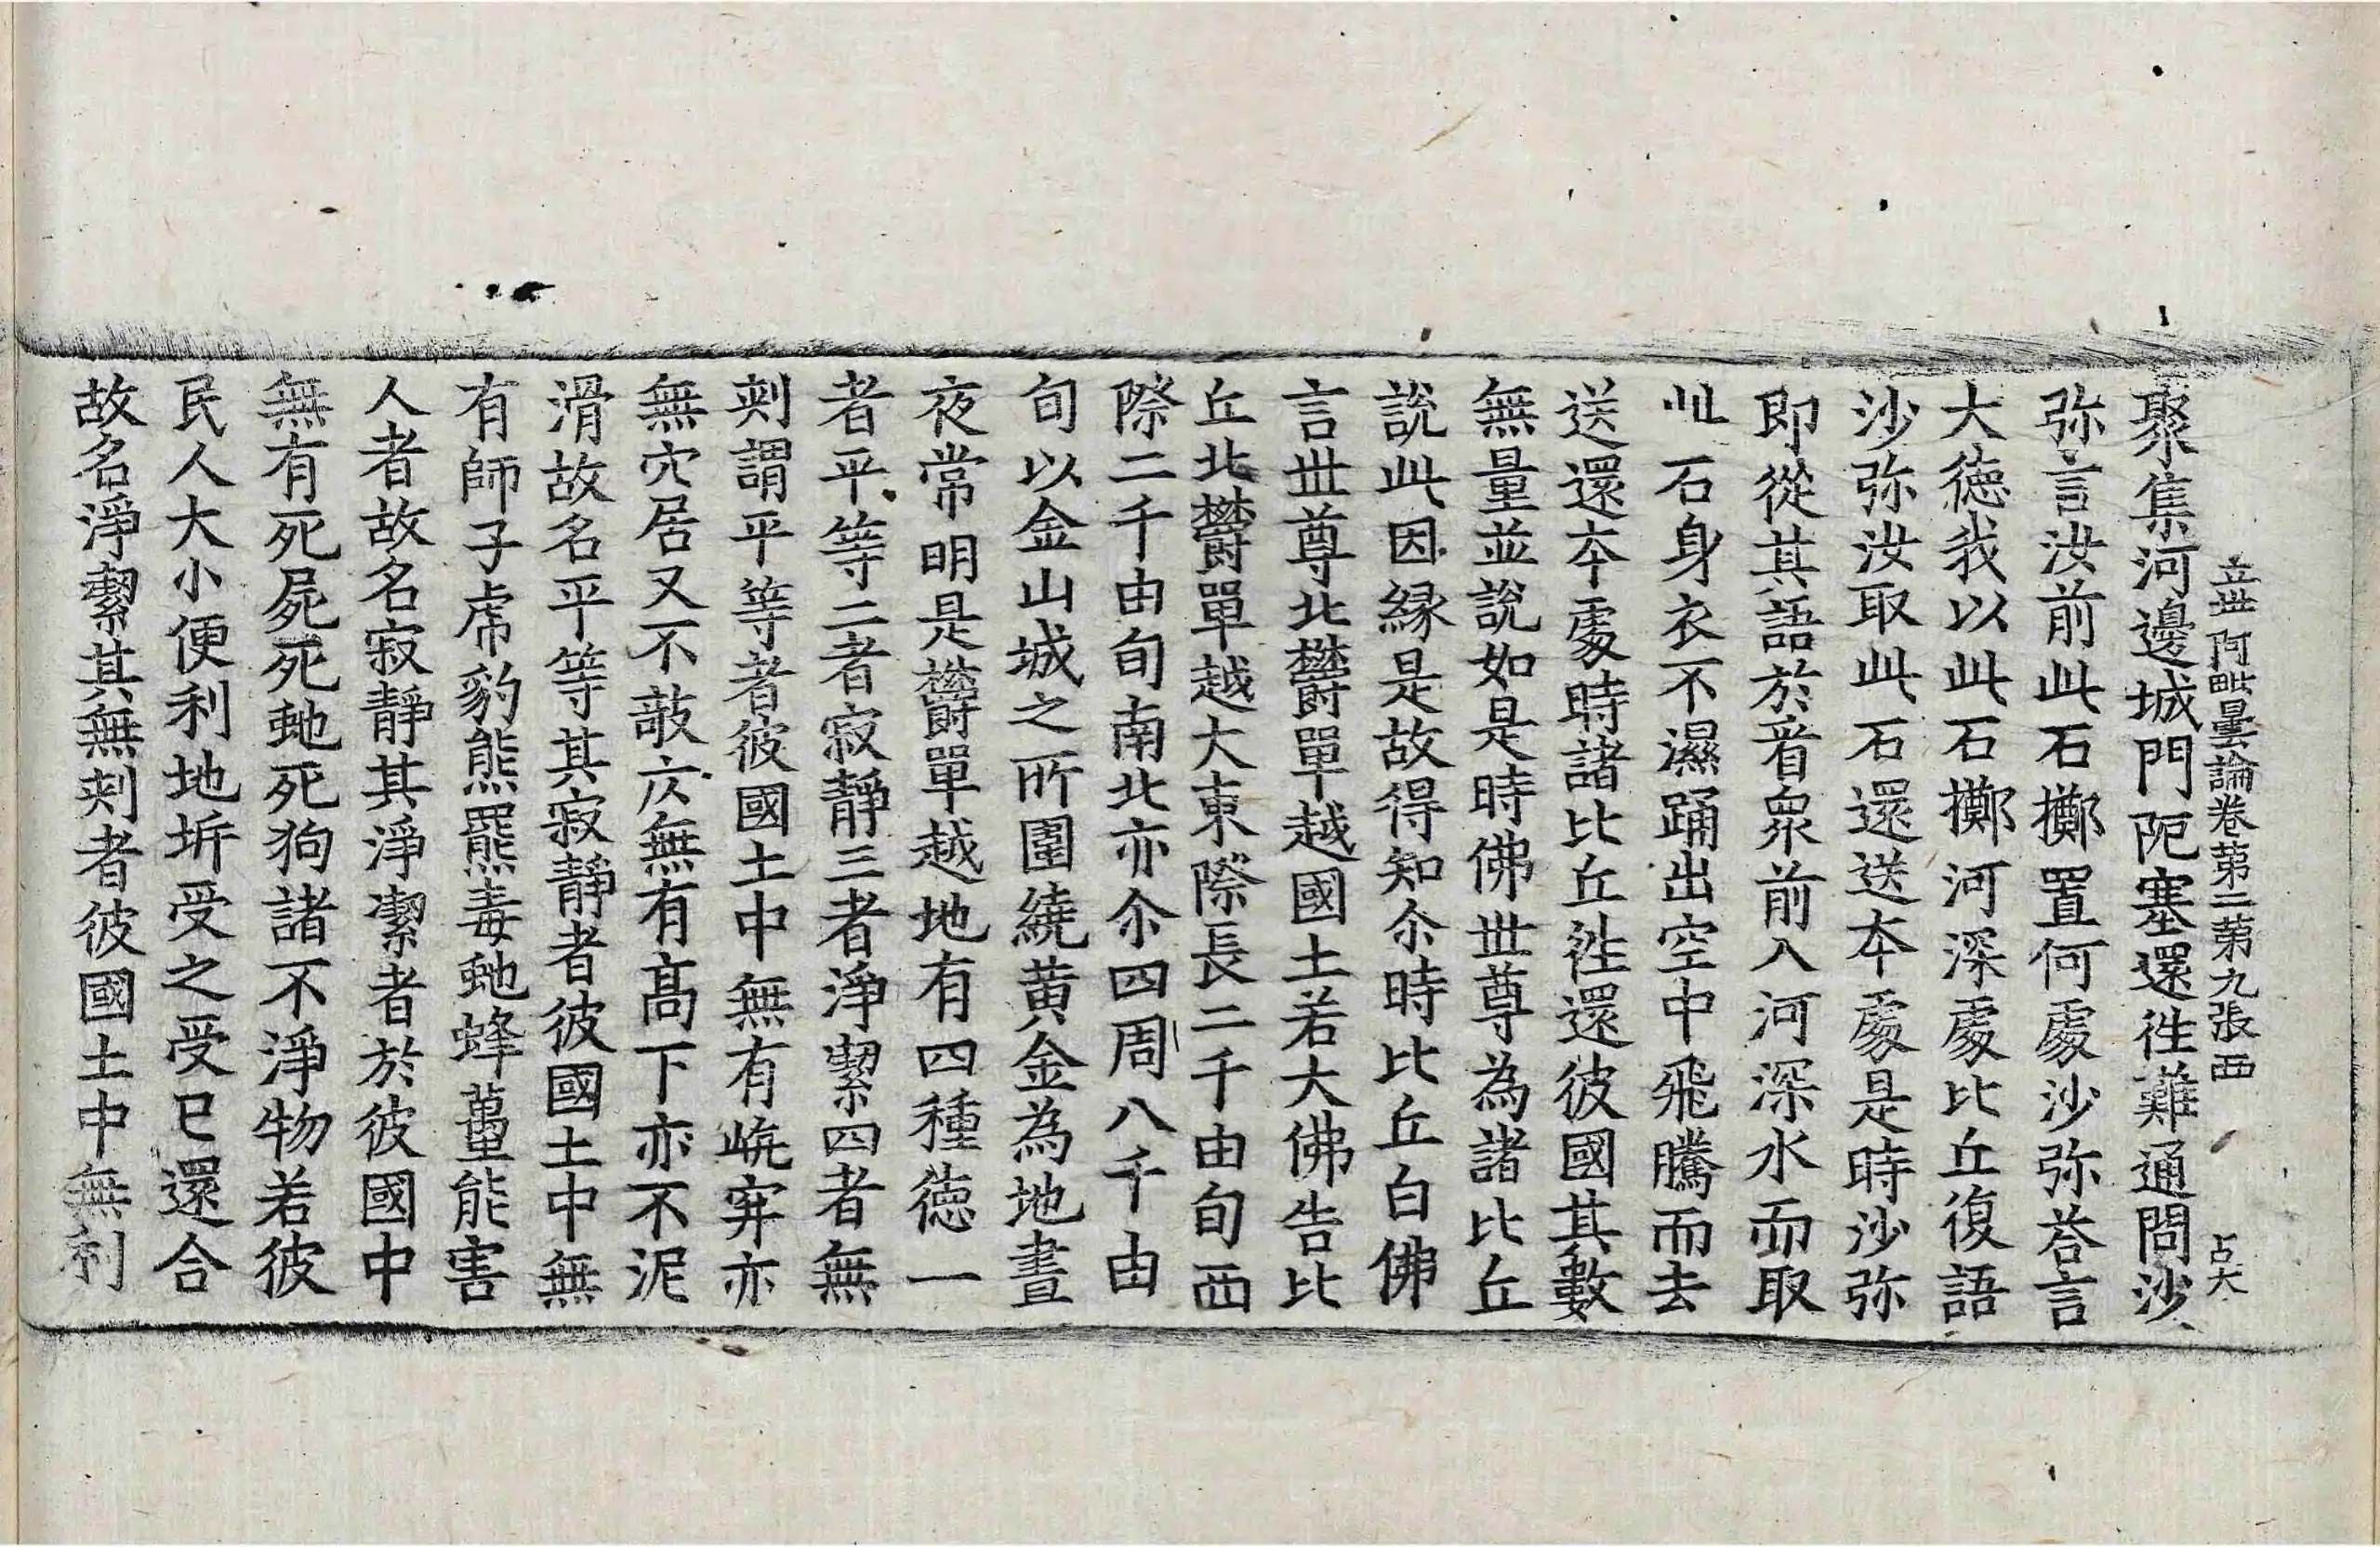 立世阿毗曇論卷苐二苐九張西 占大
聚集河邊城門阨塞還徃難通問沙
弥言汝前此石擲置何處沙弥荅言
大德我以此石擲河深處比丘復語
沙弥汝取此石還送本處是時沙弥
即從其語於眾前入河深水而取
此石身衣不濕踊出空中飛騰而去
送還本處時諸比丘徃還彼國其數
無量並說如是時佛世尊為諸比丘
說此因緣是故得知尒時比丘白佛
言世尊北欝單越國土若大佛告比
丘北欝單越大東際長二千由旬西
際二千由旬南北亦尒四周八千由
旬以金山城之所圍繞黃金為地晝
夜常明是欝單越地有四種德一
者平等二者寂靜三者淨潔四者無
刺謂平等者彼國土中無有峗穽亦
無穴居又不敲仄無有髙下亦不泥
滑故名平等其寂靜者彼國土中無
有師子虎豹熊羆毒虵蜂蠆能害
人者故名寂靜其淨潔者於彼國中
無有死屍死虵死狗諸不淨物若彼
民人大小便利地坼受之受已還合
故名淨潔其無刺者彼國土中無利